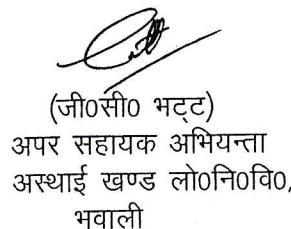 (जी0सी0 भट्ट)
अपर सहायक अभियन्ता
अस्थाई खण्ड लो0नि0वि0,
भवाली